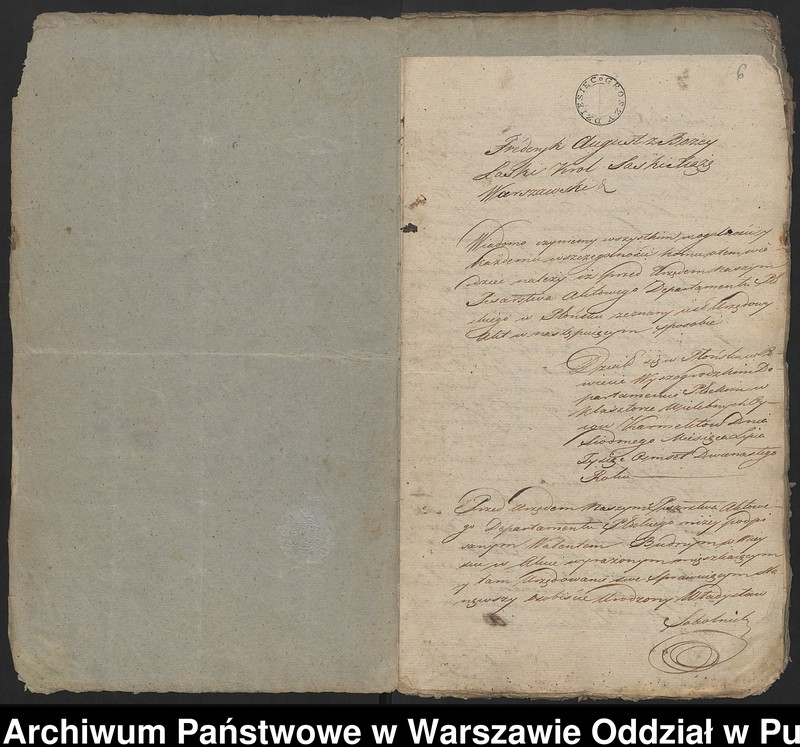 6
DZIESIĘC GROSZY
Fryderyk August z Bozey
Łaski Krol Saski Xiąże
Warszawski &
Wiadomo czynimy wszystkim w ogulności y
każdemu w szczegulnosci komu o tem wie
dziec nalezy iż przed Urzędem naszym
Pisarstwa Aktowego Departamentu Pło
ckiego w Płonsku zeznany iest Urzędowy
Akt w następuiącym sposobie
Działo się w Płonsku w Po
wiecie Wyszogrodzkim De
partamencie Płockim w
klasztorze Wielebnych Xię
ży Karmelitow Dnia
Siodmego Miesiąca Lipca
Tysiąc Osmset Dwunastego
Roku
Przed Urzędem Naszym Pisarstwa Aktowe-
go Departamentu Płockiego niżey podpi
sanym Walentem Budnym w Miey
scu w Akcie wyrażonym
y tam Urzędowanie swe sprawuiącym Sta
nąwszy osobiscie Urodzony Władysław
Sokolnicki
Archiwum Państwowe w Warszawie Oddział w Pu